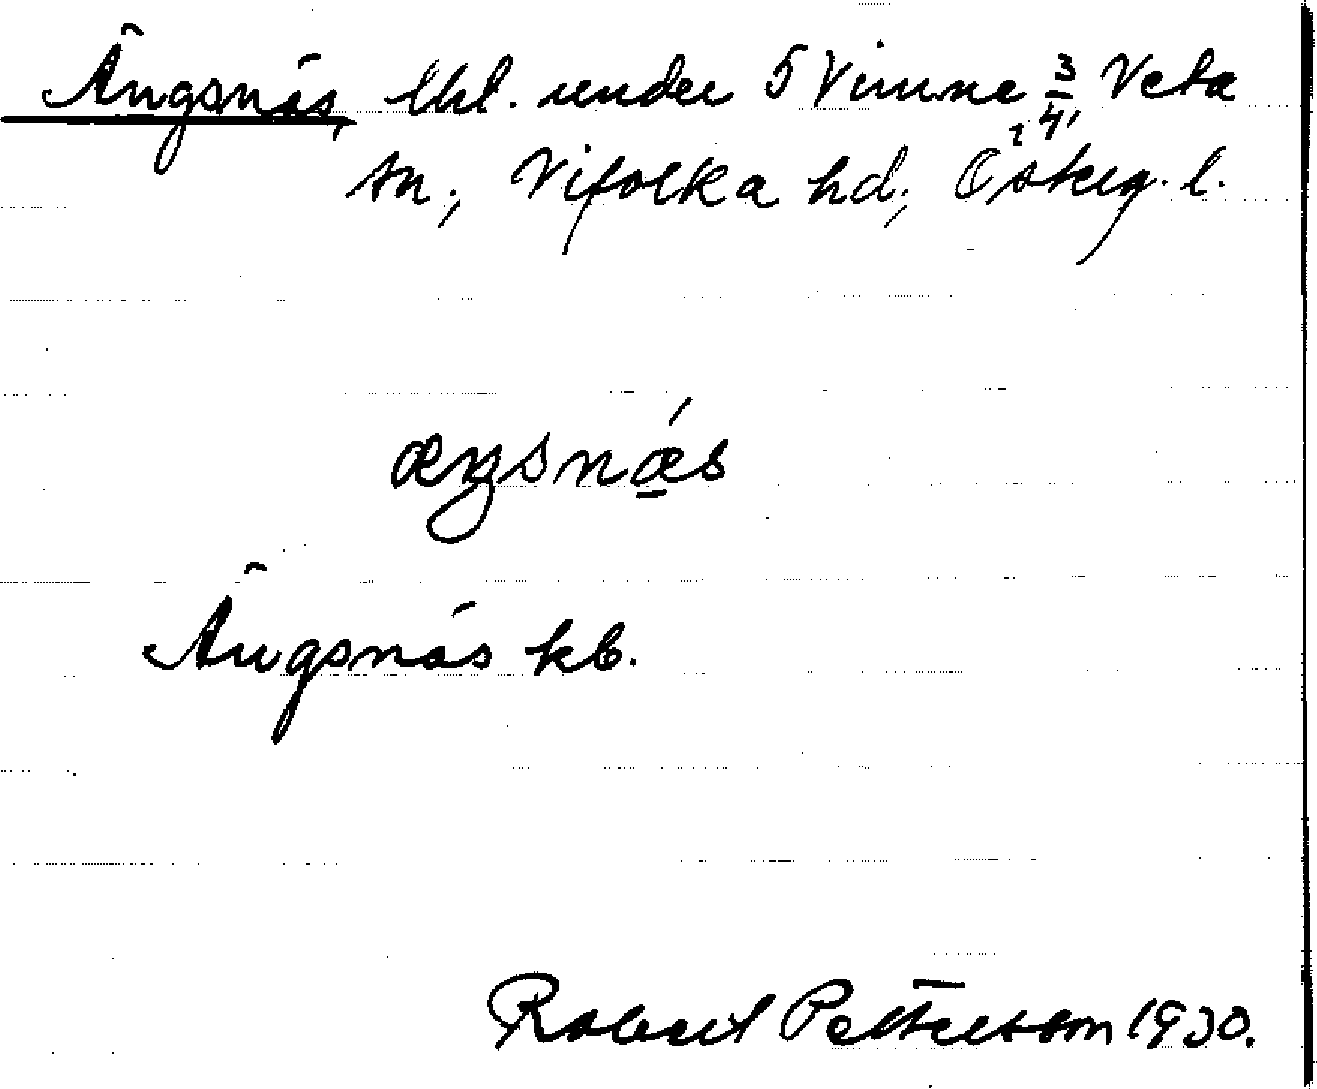 Ängsnäs, lht. under 5 Vimne 3/4, Veta
sn., Vifolka hd., Österg. l.
æŋsnǽs
Ängsnäs kb.
Robert Pettersson 1930.